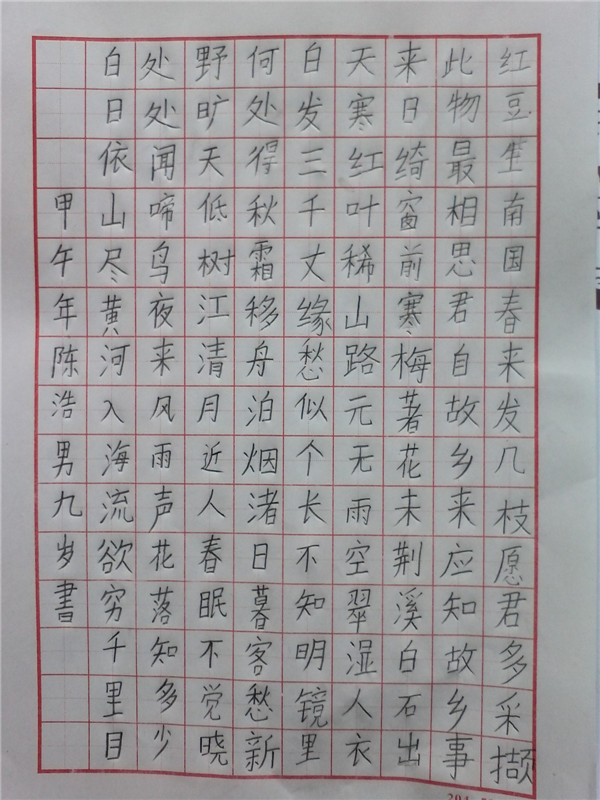 红豆生南国春来发几枝愿君多采撷
此物最相思君自故乡来应知故乡事
来日绮窗前寒梅著花未荆溪白石出
天寒红叶稀山路元无雨空翠湿人衣
白发三千丈缘愁似个长不知明镜里
何处得秋霜移舟泊烟渚日暮客愁新
野旷天低树江清月近人春眠不觉晓
处处闻啼鸟夜来风雨声花落知多少
白日依山尽黄河入海流欲穷千里目
甲午年陈浩男九岁書